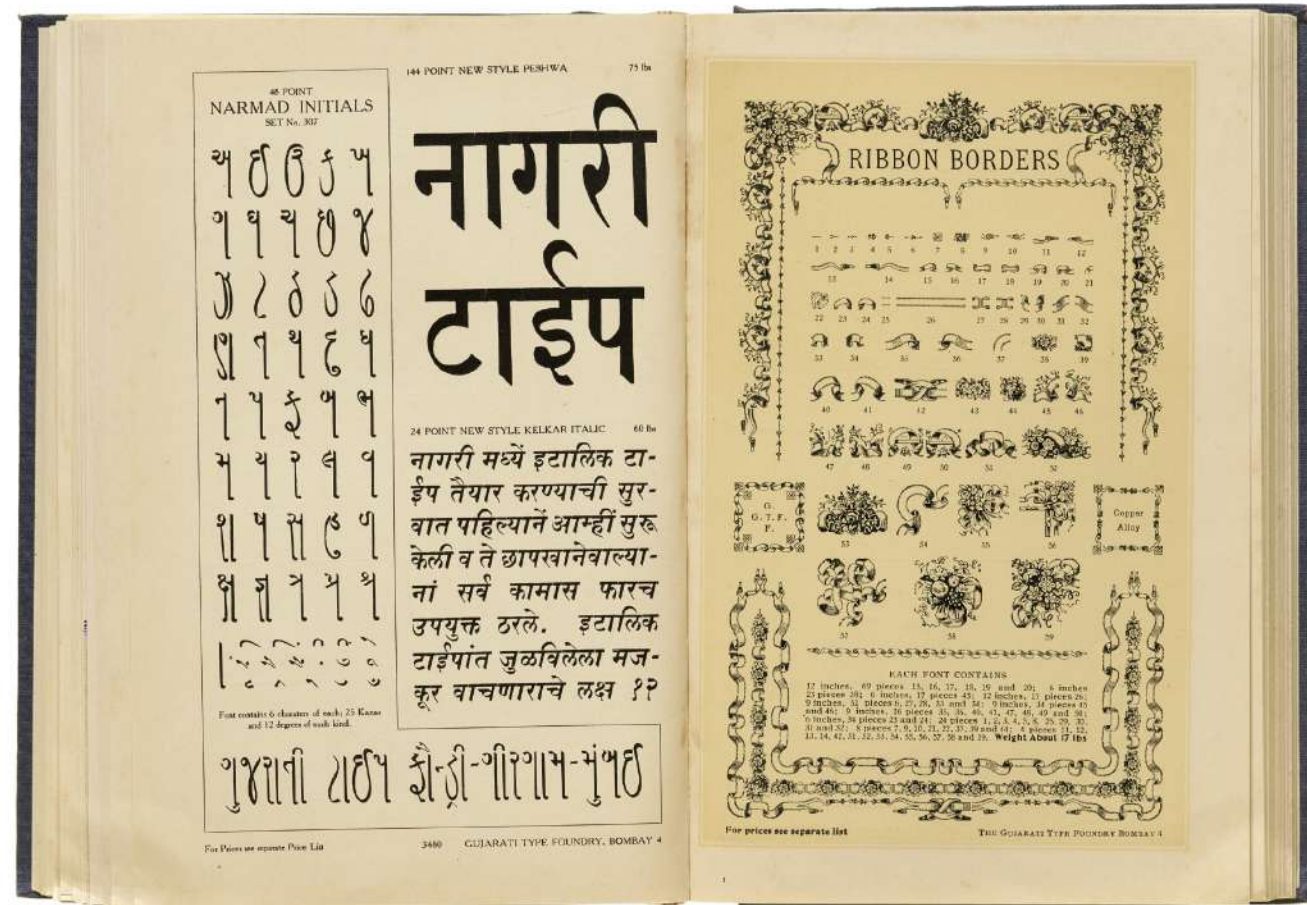 48 POINT
NARMAD INITIALS
SET No. 307
અ ઈ ઉ ક ખ
ગ ઘ ચ છ જ
ઝ ટ ઠ ડ ઢ
ણ ત થ દ ધ
ન પ ફ બ ભ
મ ય ર લ વ
શ ષ સ હ ળ
ક્ષ જ્ઞ ત્ર પ્ર શ્ર
Font contains 6 charaters of each; 25 Kanas
and 12 degrees of each kind.
144 POINT NEW STYLE PESHWA 75 lbs
नागरी
टाईप
24 POINT NEW STYLE KELKAR ITALIC 60 lbs
नागरी मध्यें इटालिक टा-
ईप तैयार करण्याची सुर-
वात पहिल्यानें आम्हीं सुरू
केली व ते छापखानेवाल्या-
नां सर्व कामास फारच
उपयुक्त ठरले. इटालिक
टाईपांत जुळविलेला मज-
कूर वाचणाराचे लक्ष १२
ગુજરાતી ટાઈપ ફૌન્ડ્રી-ગીરગામ-મુંબઈ
For Prices see separate Price List
3480 GUJARATI TYPE FOUNDRY, BOMBAY 4
RIBBON BORDERS
1 2 3 4 5 6 7 8 9 10 11 12
13 14 15 16 17 18 19 20 21
22 23 24 25 26 27 28 29 30 31 32
33 34 35 36 37 38 39
40 41 42 43 44 45 46
47 48 49 50 51 52
G.
G. T. F.
F.
53 54 55 56
Copper
Alloy
57 58 59
EACH FONT CONTAINS
12 inches, 69 pieces 15, 16, 17, 18, 19 and 20; 6 inches
23 pieces 28; 6 inches, 17 pieces 45; 12 inches, 17 pieces 26;
9 inches, 52 pieces 6, 27, 28, 33 and 34; 9 inches, 34 pieces 45
and 46; 9 inches, 26 pieces 35, 36, 40, 41, 47, 48, 49 and 50;
6 inches, 34 pieces 23 and 24; 24 pieces 1, 2, 3, 4, 5, 8, 25, 29, 30,
31 and 32; 8 pieces 7, 9, 10, 21, 22, 37, 39 and 44; 4 pieces 11, 12,
13, 14, 42, 51, 52, 53, 54, 55, 56, 57, 58 and 59. Weight About 17 lbs
For prices see separate list
THE GUJARATI TYPE FOUNDRY BOMBAY 4
1